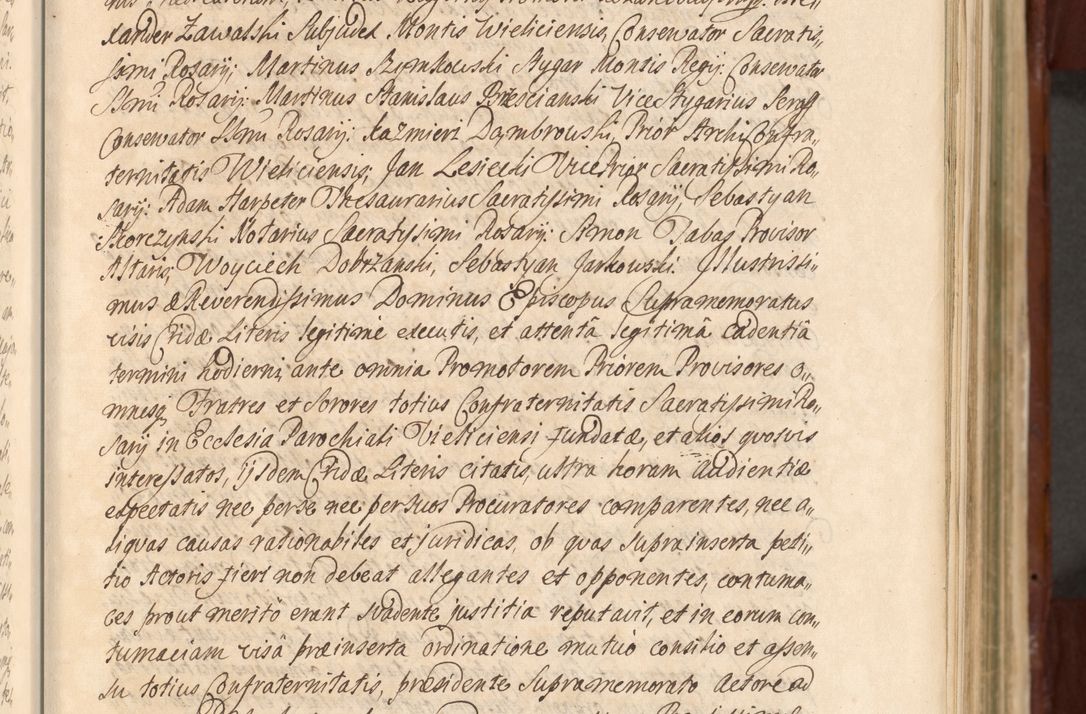 xander Zawalski Subjudex Montis Wieliciensis, Conservator Sacratis„
simi Rosarij; Martinus Szymkowski Stygar Montis Regij: Conservator
SSmi Rosarij: Martinus Stanislaus Brzescianski ViceStygarius
Conservator SSmi Rosarij: Kazmierz Dąmbrowski, Prior ArchiConfra„
ternitatis Wieliciensis; Jan Lesiecki VicePrior Sacratissimi Ro„
sarij: Adam Harpeter Thesaurarius Sacratissimi Rosarij, Sebastyan
Skorczynski Notarius Sacratissimi Rosarij: Simon Tabas Provisor
Altaris; Woyciech Dobrzanski, Sebastyan Jarkowski. Illustrissi„
mus & Reverendissimus Dominus Episcopus Supramemoratus
visis Cridæ Literis legitimè executis, et attentâ legitimâ cadentiâ
termini hodierni, ante omnia Promotorem Priorem Provisores o„
mnesq, Fratres et Sorores totius Confraternitatis Sacratissimi Ro„
sarij in Ecclesia Parochiali Vieliciensi fundatæ, et alios quosvis
interessatos, ijsdem Cridæ Literis citatis, ultra horam Audientiæ
expectatis nec per se nec per suos Procuratores comparentes, nec a„
liquas causas rationabiles et juridicas, ob quas suprainserta peti„
tio Actoris fieri non debeat allegantes et opponentes, contuma„
ces prout meritò erant svadente justitia reputavit, et in eorum con„
tumaciam visâ præinserta ordinatione mutuò consilio et assen„
su totius Confraternitatis, præsidente supramemorato Actore ad